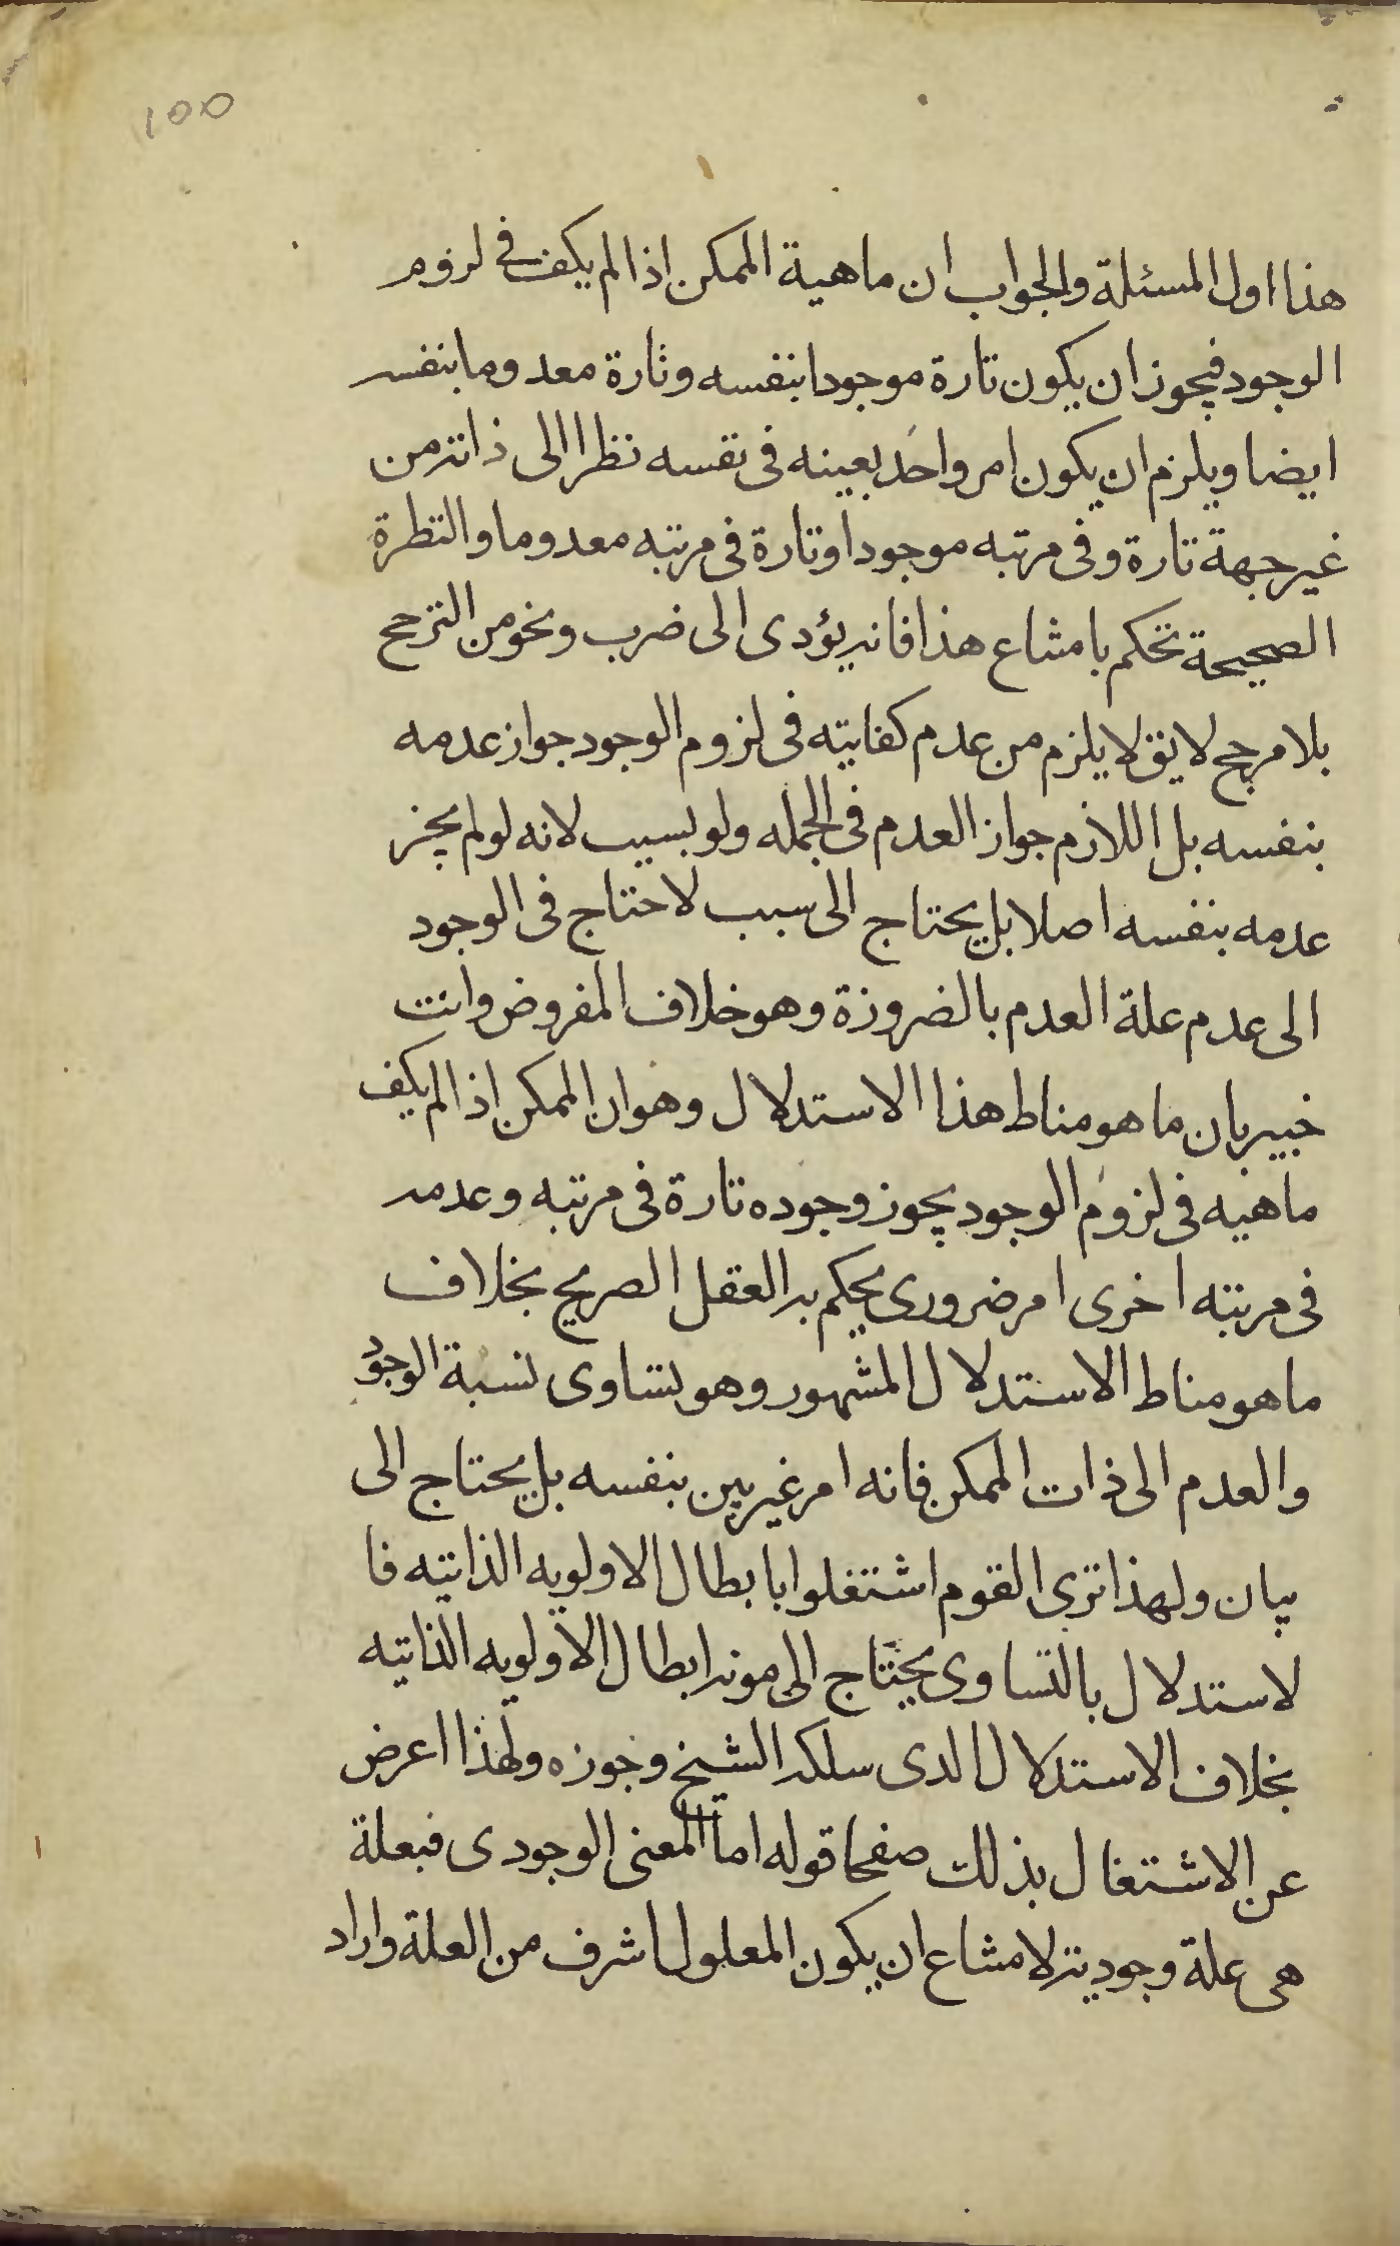 ١٥٥
هذا اول المسئلة والجواب ان ماهية الممكن اذا لم يكف فى لزوم
الوجود فيجوز ان يكون تارة موجودا بنفسه وتارة معدوما بنفسه
ايضا ويلزم ان يكون امر واحد بعينه فى نفسه نظرا الى ذاته من
غير جهة تارة وفى مرتبه موجودا وتارة فى مرتبه معدوما والنظرة
الصحيحة تحكم بامتناع هذا فانه يؤدى الى ضرب ونحو من الترجح
بلا مرجح لا يق لا يلزم من عدم كفايته فى لزوم الوجود جواز عدمه
بنفسه بل اللازم جواز العدم فى الجمله ولو بسبب لانه لو لم يجز
عدمه بنفسه اصلا بل يحتاج الى سبب لاحتاج فى الوجود
الى عدم علة العدم بالضرورة وهو خلاف المفروض وانت
خبير بان ما هو مناط هذا الاستدلال وهو ان الممكن اذا لم يكف
ماهيه فى لزوم الوجود يجوز وجوده تارة فى مرتبه وعدمه
فى مرتبه اخرى امر ضرورى يحكم به العقل الصريح بخلاف
ما هو مناط الاستدلال المشهور وهو تساوى نسبة الوجود
والعدم الى ذات الممكن فانه امر غير بين بنفسه بل يحتاج الى
بيان ولهذا ترى القوم اشتغلوا بابطال الاولويه الذاتيه فا
لاستدلال بالتساوى يحتاج الى مونه ابطال الاولويه الذاتيه
بخلاف الاستدلال الدى سلكه الشيخ وجوزه ولهذا اعرض
عن الاشتغال بذلك صفحا قوله اما المعنى الوجودى فبعلة
هى علة وجودية لامتناع ان يكون المعلول اشرف من العلة واراد